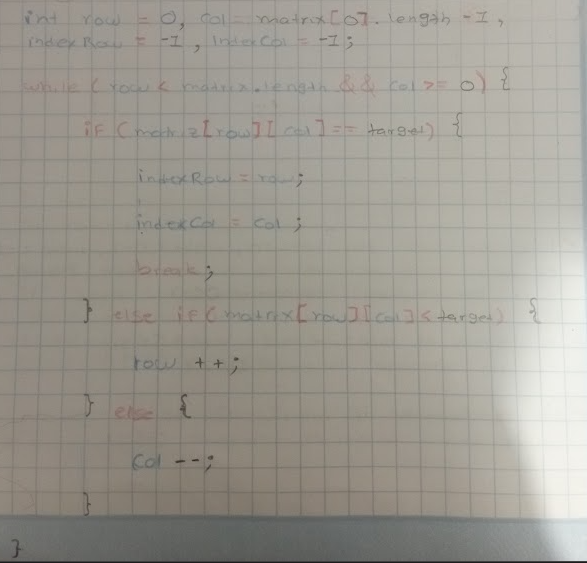 int row = 0, col = matrix[0].length - 1,
indexRow = -1, indexCol = -1;
while (row < matrix.length && col >= 0) {
if (matriz[row][col] == target) {
indexRow = row;
indexCol = col;
break;
} else if (matrix[row][col] < target) {
row ++;
} else {
col --;
}
}